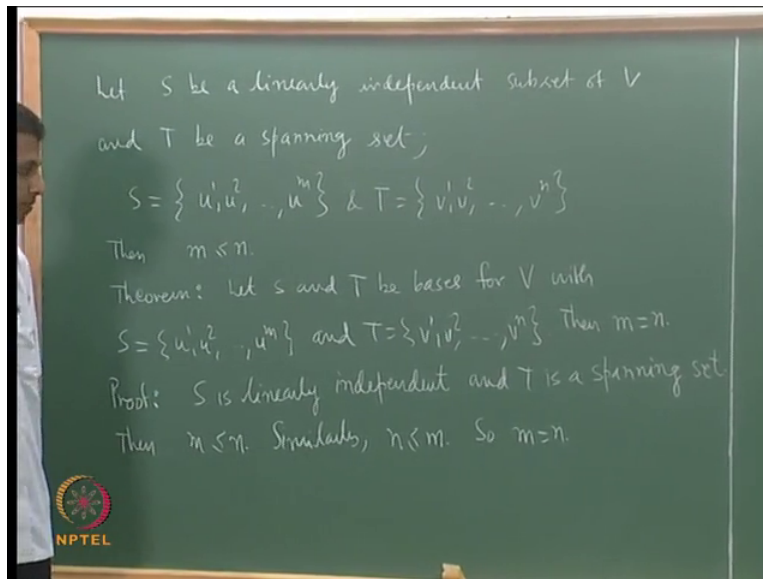 Let S be a linearly independent subset of V
and T be a spanning set;
S = { u¹, u², .., uᵐ } & T = { v¹, v², .., vⁿ }
Then m ≤ n.
Theorem: Let S and T be bases for V with
S = { u¹, u², .., uᵐ } and T = { v¹, v², .., vⁿ } Then m = n.
Proof: S is linearly independent and T is a spanning set.
Then m ≤ n. Similarly, n ≤ m. So m = n.
NPTEL